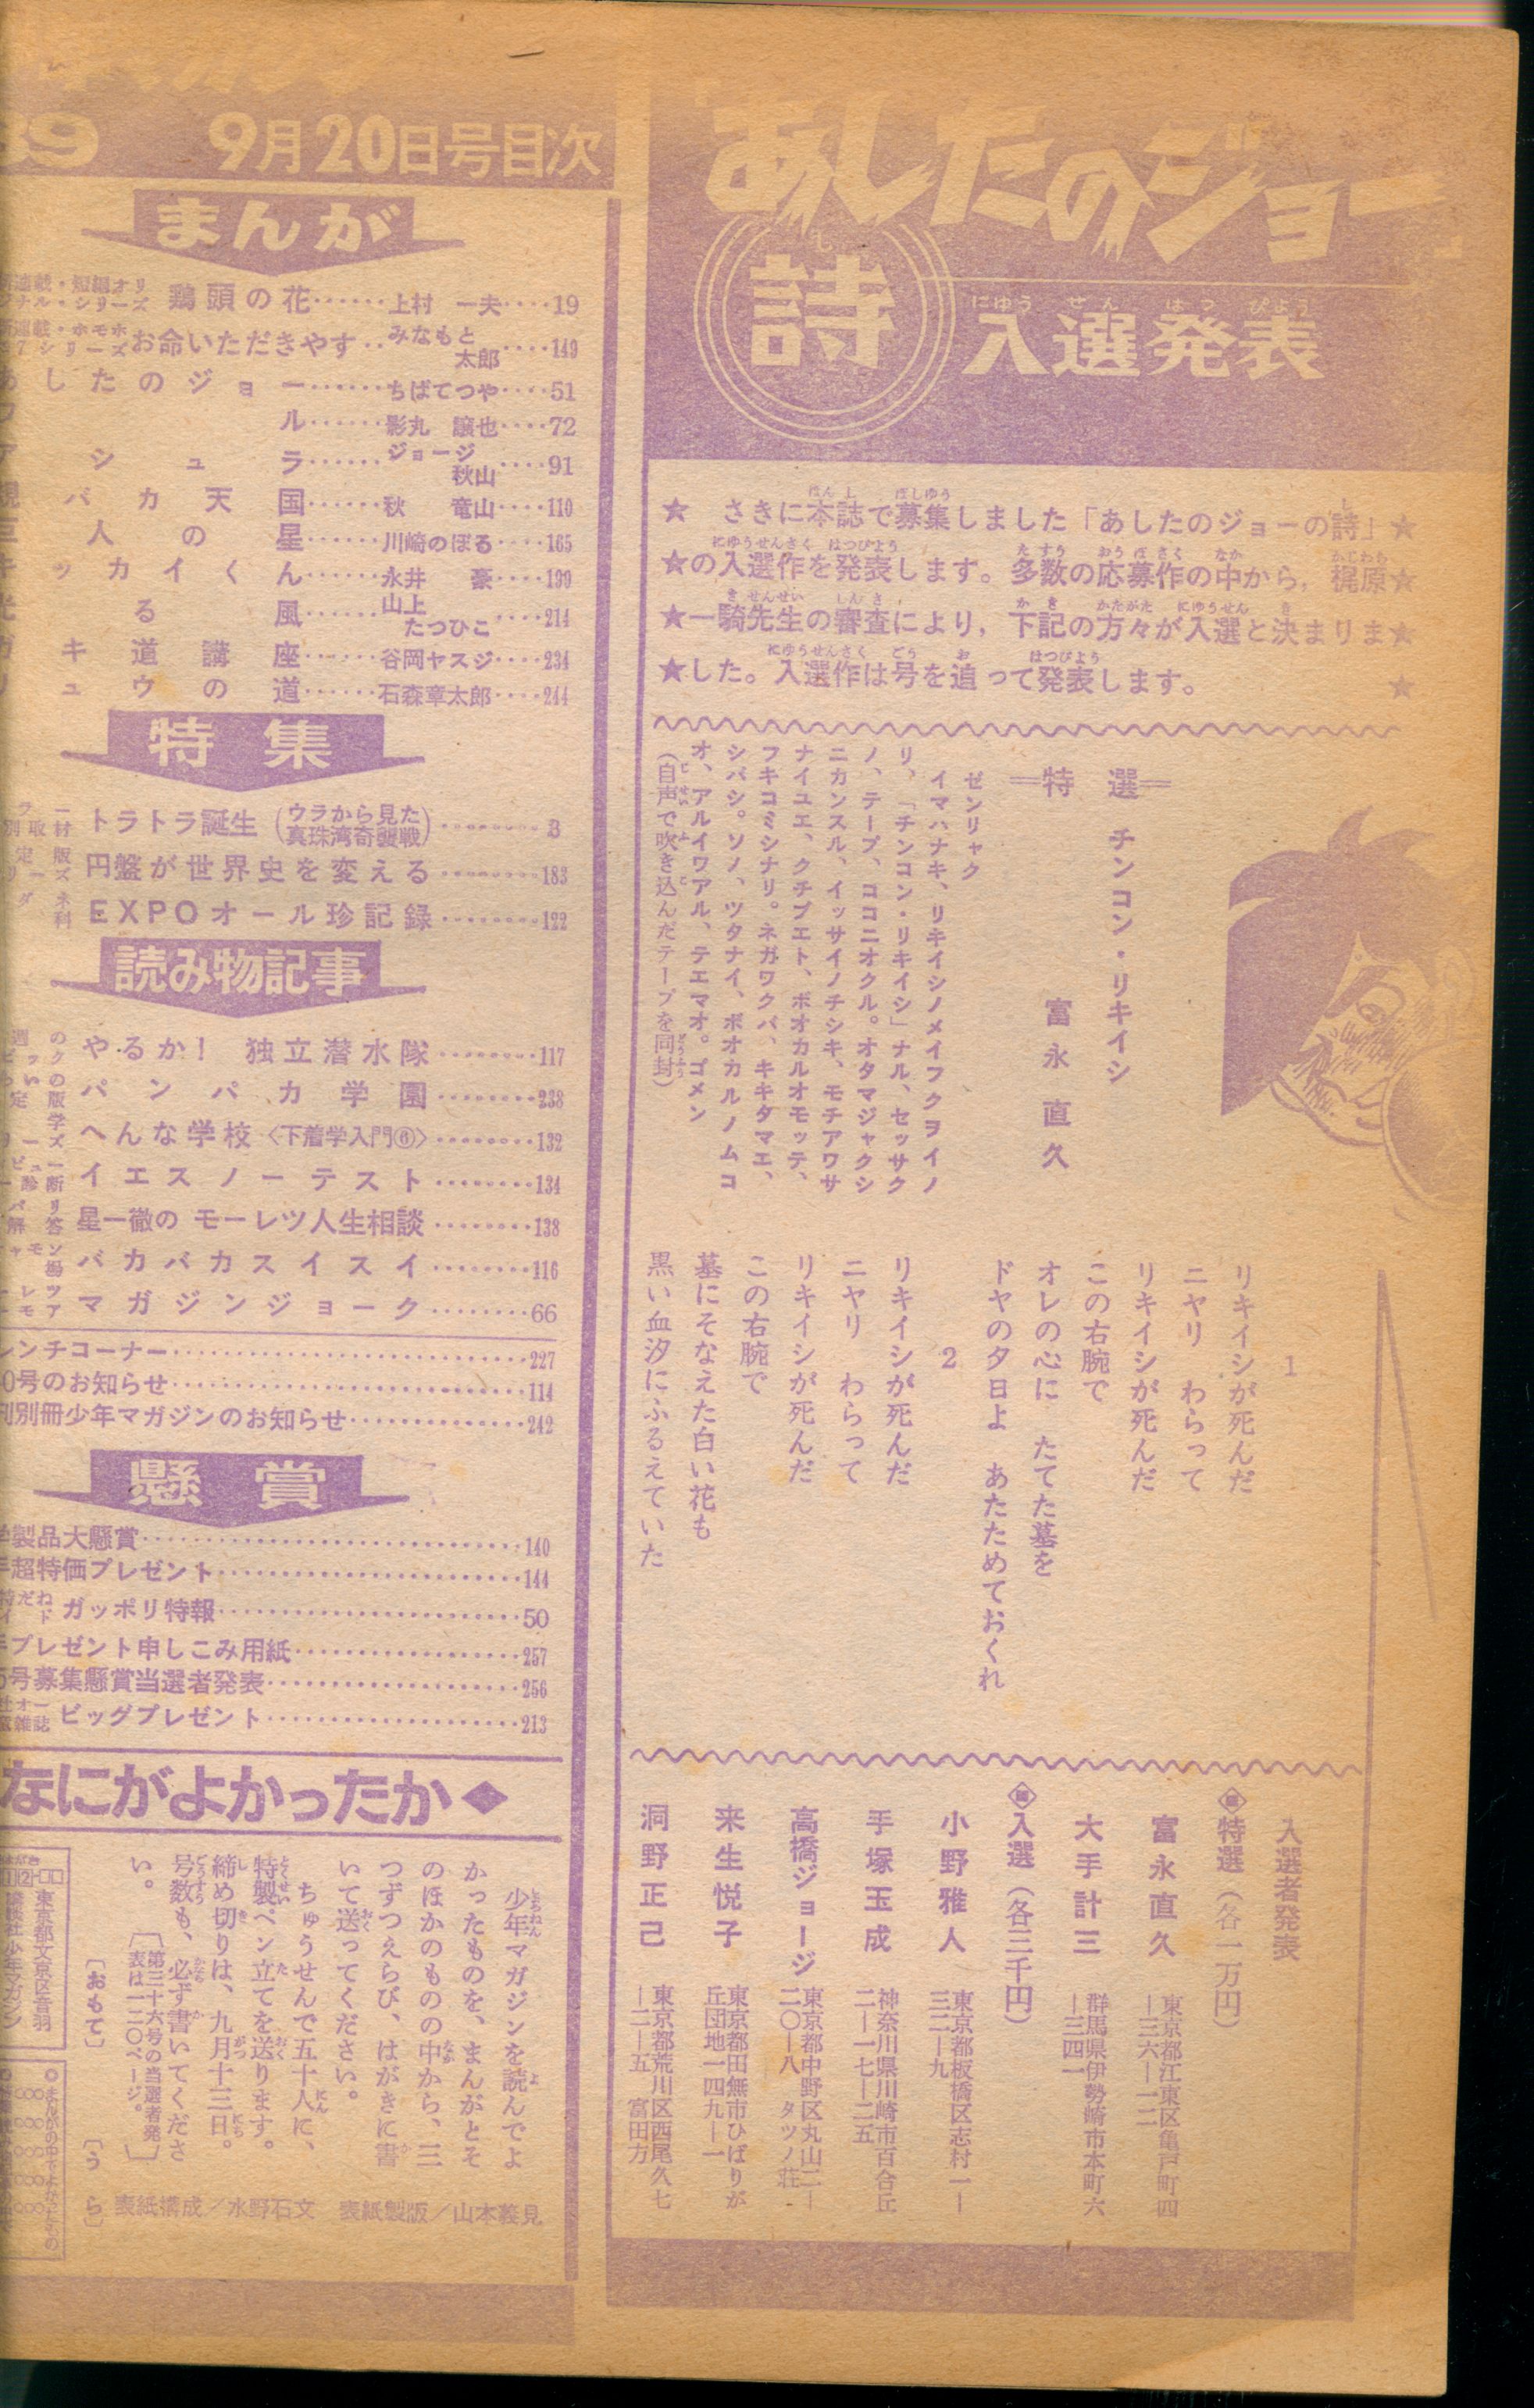 「あしたのジョー」
詩
し
入選発表
にゅう せん はっ ぴょう
★ さきに本誌で募集しました「あしたのジョーの詩」★
★の入選作を発表します。多数の応募作の中から，梶原★
★一騎先生の審査により，下記の方々が入選と決まりま★
★した。入選作は号を追って発表します。 ★
＝特 選＝
チンコン・リキイシ
富永直久
ゼンリャク
イマハナキ、リキイシノメイフクヲイノ
リ、「チンコン・リキイシ」ナル、セッサク
ノ、テープ、ココニオクル。オタマジャクシ
ニカンスル、イッサイノチシキ、モチアワサ
ナイユエ、クチブエト、ボオカルオモッテ、
フキコミシナリ。ネガワクバ、キキタマエ、
シバシ。ソノ、ツタナイ、ボオカルノムコ
オ、アルイワアル、テエマオ。ゴメン
（自声で吹き込んだテープを同封）
1
リキイシが死んだ
ニヤリ わらって
リキイシが死んだ
この右腕で
オレの心に たてた墓を
ドヤの夕日よ あたためておくれ
2
リキイシが死んだ
ニヤリ わらって
リキイシが死んだ
この右腕で
墓にそなえた白い花も
黒い血汐にふるえていた
入選者発表
◈特選（各一万円）
富永直久 東京都江東区亀戸町四
―三六―一二
大手計三 群馬県伊勢崎市本町六
―三四一
◈入選（各三千円）
小野雅人 東京都板橋区志村一―
三二―九
手塚玉成 神奈川県川崎市百合丘
二―一七―二五
高橋ジョージ 東京都中野区丸山二―
二〇―八 タツノ荘
来生悦子 東京都田無市ひばりが
丘団地一四九―一
洞野正己 東京都荒川区西尾久七
―二―五 富田方
39 9月20日号目次
まんが
鶏頭の花……上村 一夫……19
お命いただきやす‥みなもと太郎……149
あしたのジョー……ちばてつや……51
ル……影丸 譲也……72
アシュラ……ジョージ秋山……91
バカ天国……秋 竜山……110
巨人の星……川崎のぼる……165
キッカイくん……永井 豪……199
光る風……山上たつひこ……214
ガキ道講座……谷岡ヤスジ……234
リュウの道……石森章太郎……244
特集
トラトラ誕生（ウラから見た真珠湾奇襲戦）……3
円盤が世界史を変える……183
EXPOオール珍記録……122
読み物記事
やるか！ 独立潜水隊……117
パンパカ学園……238
へんな学校〈下着学入門⑥〉……132
イエスノーテスト……134
星一徹の モーレツ人生相談……138
バカバカスイスイ……116
マガジンジョーク……66
レンチコーナー……227
0号のお知らせ……114
刊別冊少年マガジンのお知らせ……242
懸賞
学製品大懸賞……140
超特価プレゼント……144
特だね
ガッポリ特報……50
プレゼント申しこみ用紙……257
5号募集懸賞当選者発表……256
ビッグプレゼント……213
なにがよかったか◆
少年マガジンを読んでよ
かったものを、まんがとそ
のほかのものの中から、三
つずつえらび、はがきに書
いて送ってください。
ちゅうせんで五十人に、
特製ペン立てを送ります。
締め切りは、九月十三日。
号数も、必ず書いてくださ
い。
〔第三十六号の当選者発
表は一二〇ページ。〕
〔おもて〕
東京都文京区音羽
講談社 少年マガジン
〔うら〕
表紙構成／水野石文 表紙製版／山本義見